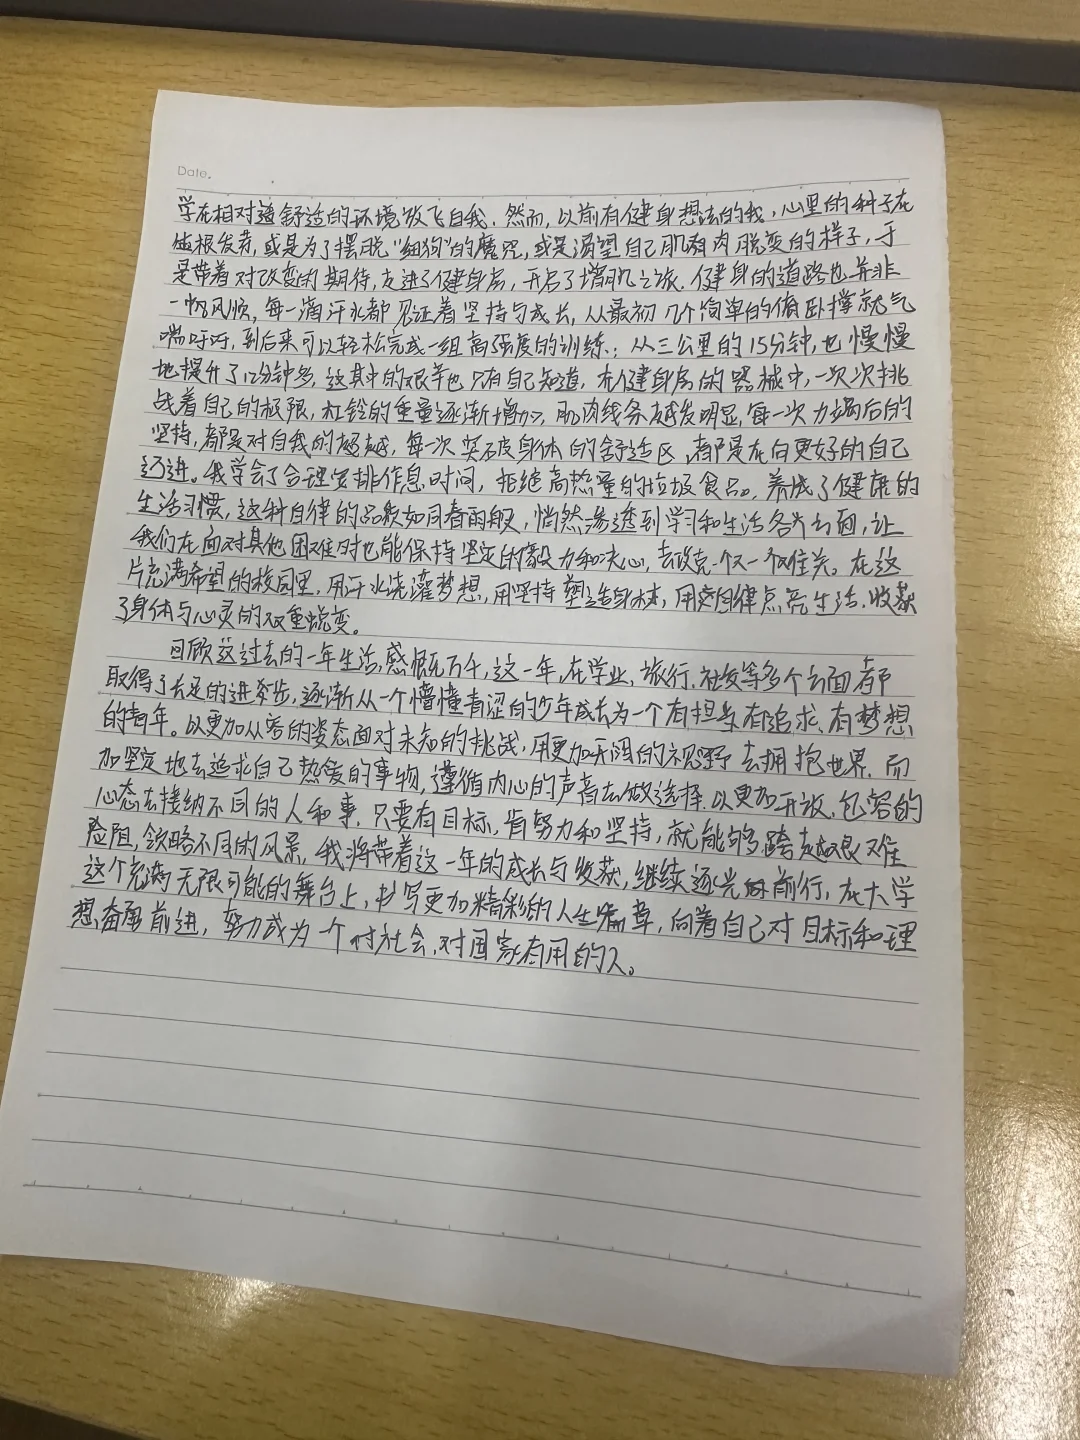 Date.
学在相对造舒适的环境放飞自我. 然而, 以前有健身想法的我, 心里的种子在
生根发芽, 或是为了摆脱"细狗"的魔咒, 或是渴望自己肌肉脱变的样子, 于
是带着对改变的期待, 走进了健身房, 开启了增肌之旅. 健身的道路也并非
一帆风顺, 每一滴汗水都见证着坚持与成长, 从最初几个简单的俯卧撑就气
喘吁吁, 到后来可以轻松完成一组高强度的训练; 从三公里的15分钟, 也慢慢
地提升了12分钟多, 这其中的艰辛也只有自己知道, 在健身房的器械中, 一次次挑
战着自己的极限, 杠铃的重量逐渐增加, 肌肉线条越发明显, 每一次力竭后的
坚持, 都是对自我的超越, 每一次突破身体的舒适区, 都是在向更好的自己
迈进。我学会了合理安排作息时间, 拒绝高热量的垃圾食品。养成了健康的
生活习惯, 这种自律的品质如同春雨般, 悄然渗透到学习和生活各个方面, 让
我们在面对其他困难时也能保持坚定的毅力和决心, 去攻克一个又一个难关。在这
片充满希望的校园里, 用汗水浇灌梦想, 用坚持塑造身材, 用自律点亮生活, 收获
了身体与心灵的双重蜕变。
回顾这过去的一年生活, 感慨万千, 这一年, 在学业、旅行、社交等多个方面都
取得了长足的进步, 逐渐从一个懵懂青涩的少年成长为一个有担当、有追求、有梦想
的青年。以更加从容的姿态面对未知的挑战, 用更加开阔的视野去拥抱世界. 而
加坚定地去追求自己热爱的事物, 遵循内心的声音去做选择. 以更加开放、包容的
心态去接纳不同的人和事. 只要有目标, 肯努力和坚持, 就能够跨越艰难
险阻, 领略不同的风景. 我将带着这一年的成长与收获, 继续逐光前行, 在大学
这个充满无限可能的舞台上, 书写更加精彩的人生篇章, 向着自己对目标和理
想奋勇前进, 努力成为一个对社会、对国家有用的人。